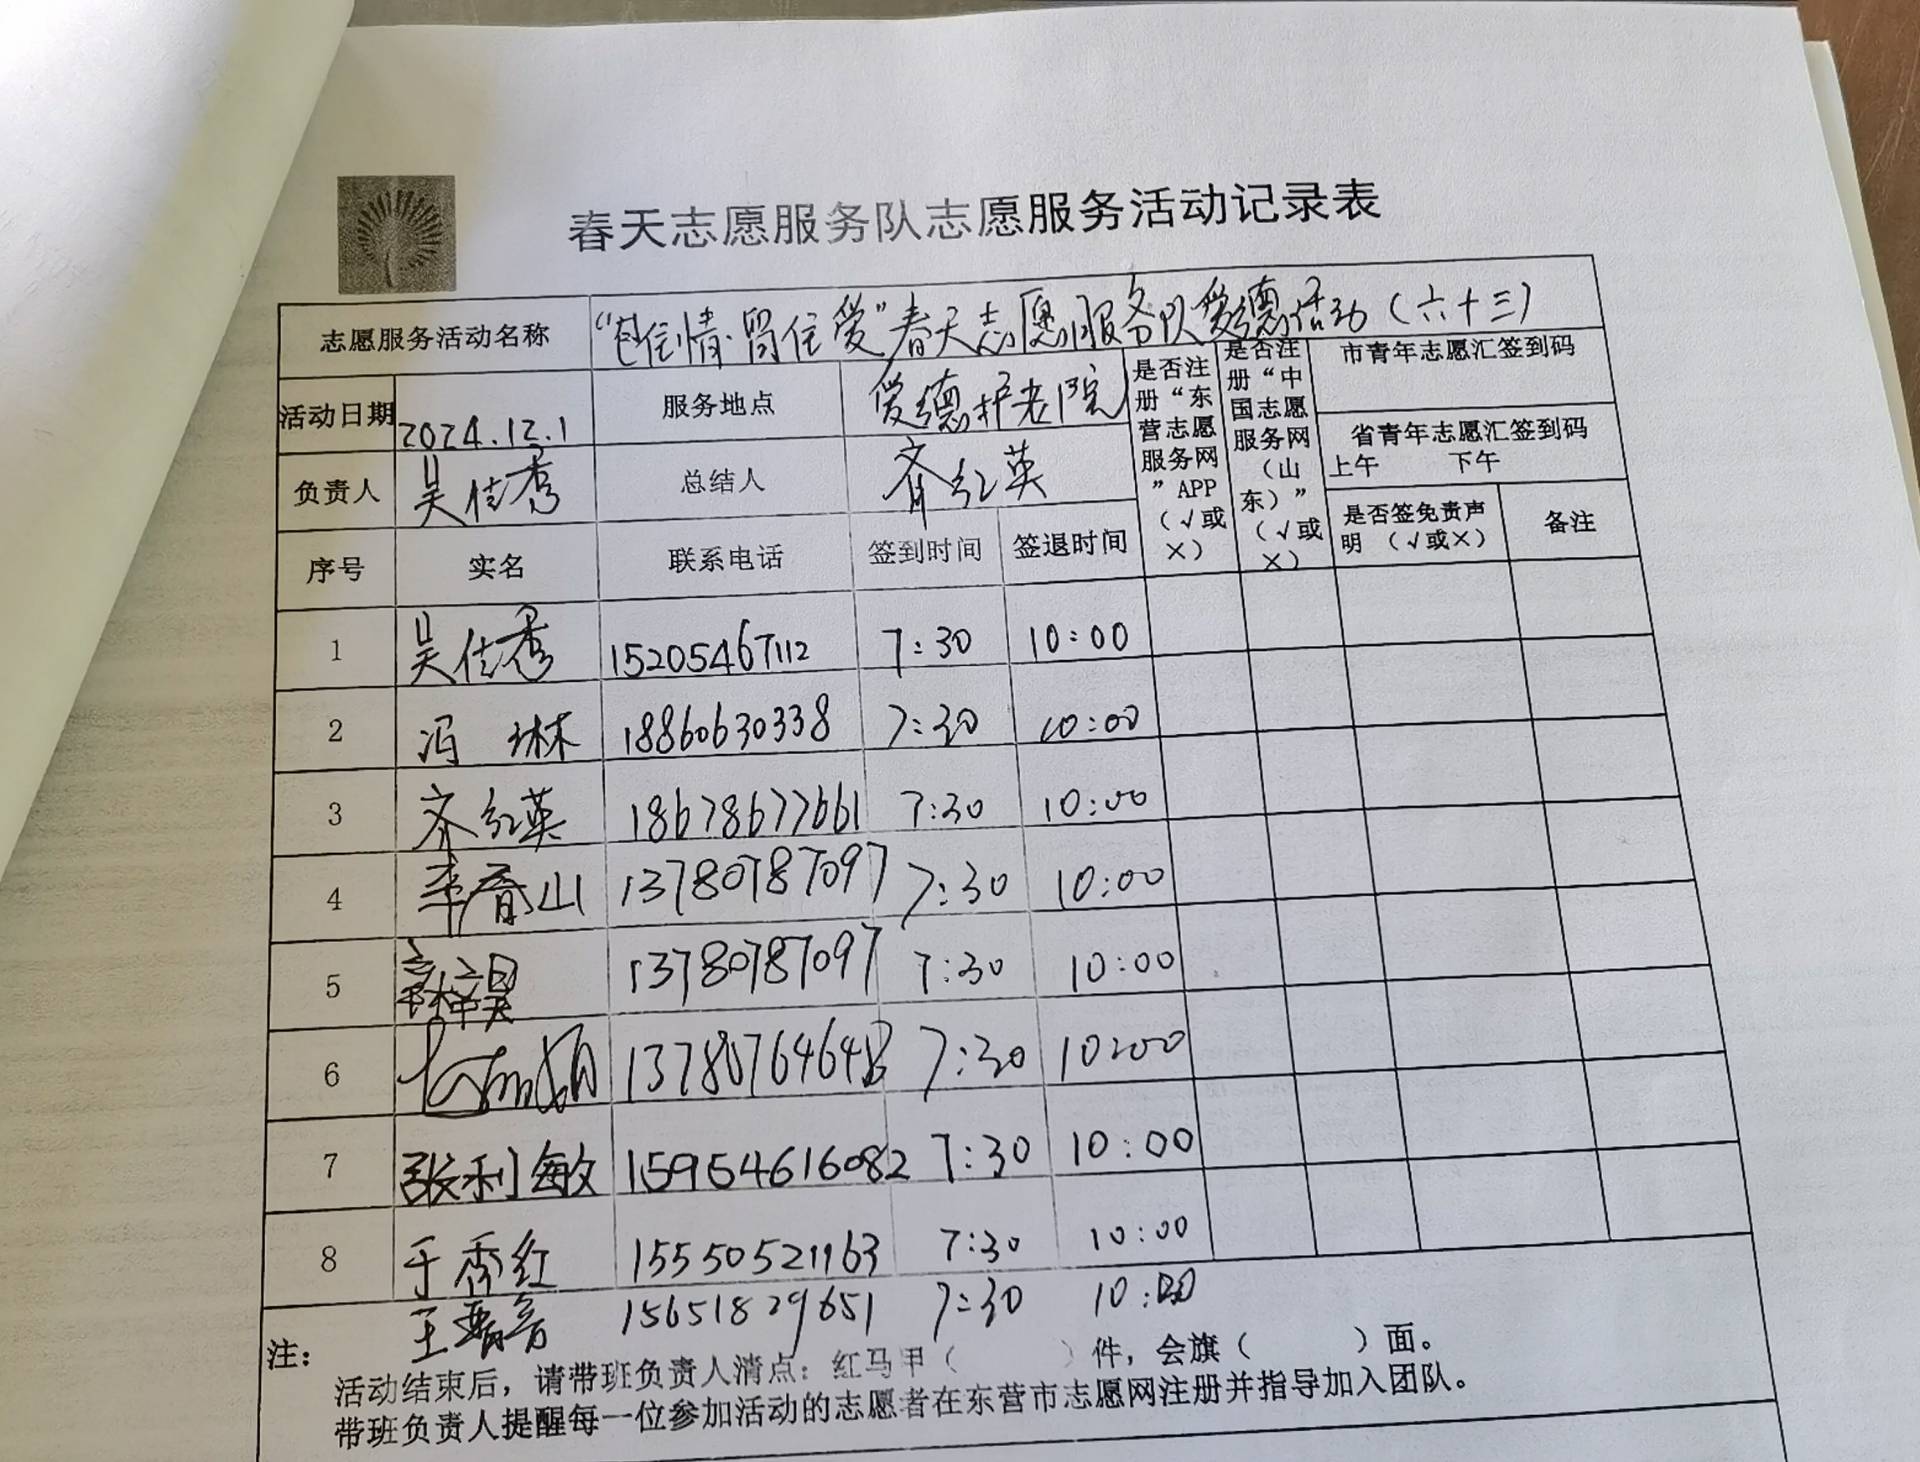 春天志愿服务队志愿服务活动记录表
志愿服务活动名称 “包住情·留住爱”春天志愿服务队爱德活动（六十三）
活动日期 2024.12.1 服务地点 爱德护老院 是否注册“东营志愿服务网”APP（√或×） 是否注册“中国志愿服务网（山东）”（√或×） 市青年志愿汇签到码
省青年志愿汇签到码
上午 下午
负责人 吴佳秀 总结人 齐红英 是否签免责声明 （√或×） 备注
序号 实名 联系电话 签到时间 签退时间
1 吴佳秀 15205467112 7:30 10:00
2 冯琳 18860630338 7:30 10:00
3 齐红英 18678677661 7:30 10:00
4 李春山 13780787097 7:30 10:00
5 13780787097 7:30 10:00
6 13780764648 7:30 10:00
7 张利敏 15954616082 7:30 10:00
8 于秀红 15550521163 7:30 10:00
王 15651829651 7:30 10:00
注：
活动结束后，请带班负责人清点：红马甲（ ）件，会旗（ ）面。
带班负责人提醒每一位参加活动的志愿者在东营市志愿网注册并指导加入团队。